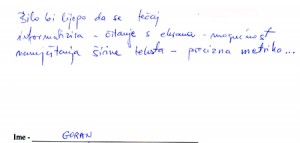 Bilo bi lijepo da se tečaj
informatizira - čitanje s ekrana - mogućnost
namještanja širine teksta - precizna metrika...
Ime - GORAN